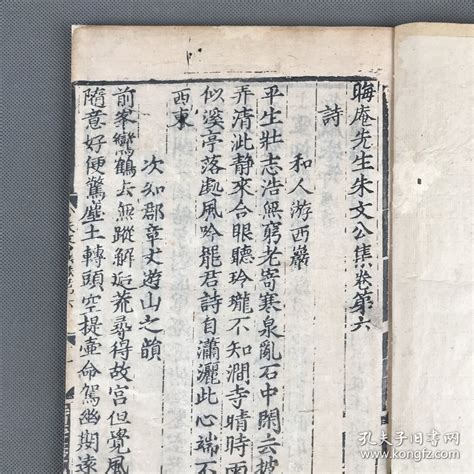 晦庵先生朱文公集卷第六
詩
和人游西巖
平生壯志浩無窮老寄寒泉亂石中閑云披
弄清泚靜來合眼聽玲瓏不知澗寺晴時雨
似溪亭落熱風吟罷君詩自瀟灑此心端不
西東
次知郡章丈遊山之韻
前峯鸞鶴去無蹤解逅荒尋得故宮但覺風
隨意好便驚塵土轉頭空提壷命駕幽期遠
孔夫子旧书网
www.kongfz.com